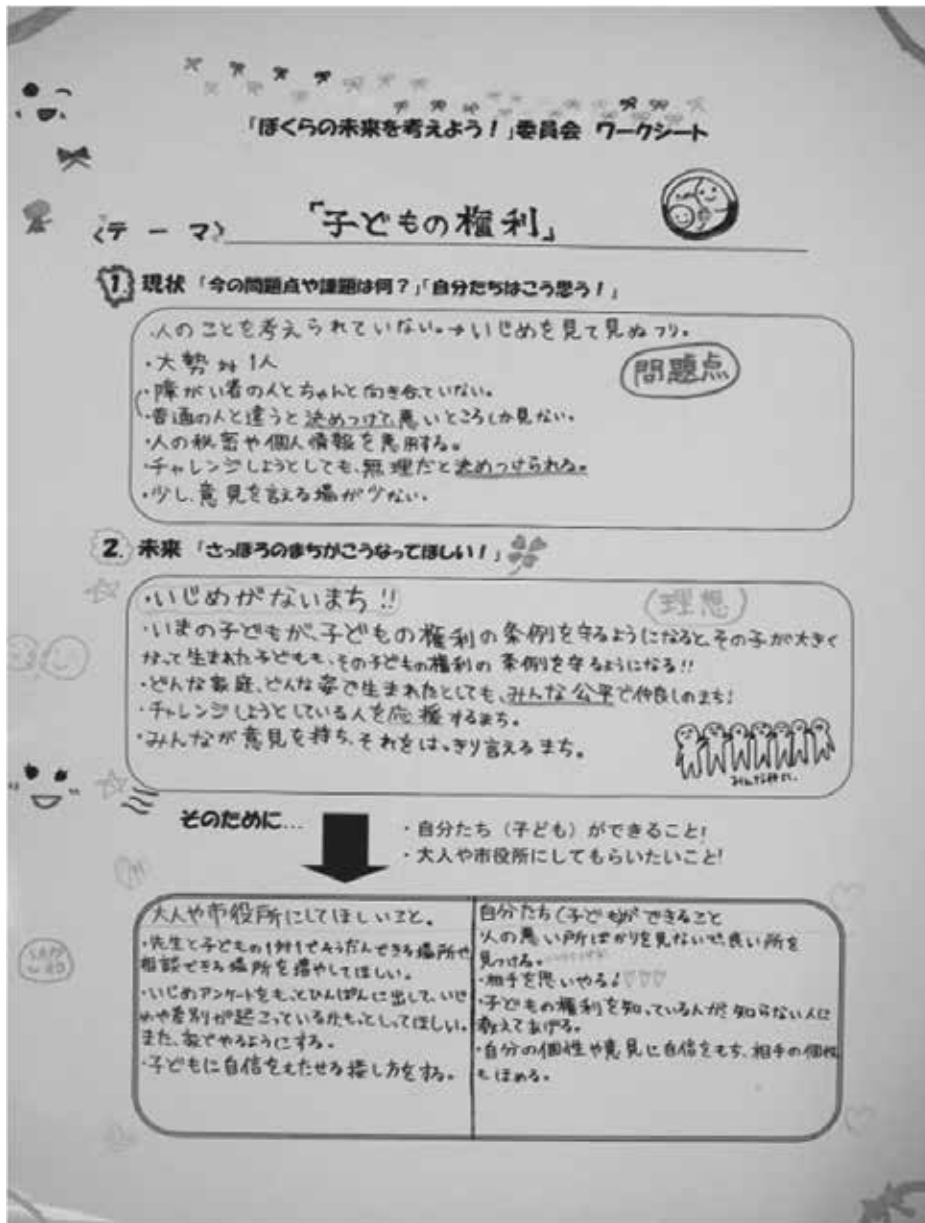 「ぼくらの未来を考えよう！」委員会 ワークシート
〈テーマ〉「子どもの権利」
1. 現状 「今の問題点や課題は何？」「自分たちはこう思う！」
・人のことを考えられていない。→いじめを見て見ぬフリ。
・大勢対1人
問題点
・障がい者の人とちゃんと向き合ていない。
・普通の人と違うと決めつけて、悪いところしか見ない。
・人の秘密や個人情報を悪用する。
・チャレンジしようとしても、無理だと決めつけられる。
・少し、意見を言える場が少ない。
2. 未来 「さっぽろのまちがこうなってほしい！」
・いじめがないまち!!
（理想）
・いまの子どもが、子どもの権利の条例を守るようになると、その子が大きく
なって生まれた子どもも、その子どもの権利の条例を守るようになる!!
・どんな家庭、どんな姿で生まれたとしても、みんな公平で仲良しのまち!
・チャレンジしようとしている人を応援するまち。
・みんなが意見を持ち、それをはっきり言えるまち。
そのために…
・自分たち（子ども）ができること!
・大人や市役所にしてもらいたいこと!
大人や市役所にしてほしいこと。
・先生と子どもの1対1でそうだんできる場所や
相談できる場所を増やしてほしい。
・いじめアンケートをもっとひんぱんに出して、いじ
めや差別が起こっているか、もっとしってほしい。
また、家でやるようにする。
・子どもに自信をもたせる接し方をする。
自分たち（子ども）ができること
・人の悪い所ばかりを見ないで、良い所を
見つける。
・相手を思いやる♪♡♡♡
・子どもの権利を知っている人が、知らない人に
教えてあげる。
・自分の個性や意見に自信をもち、相手の個性
もほめる。